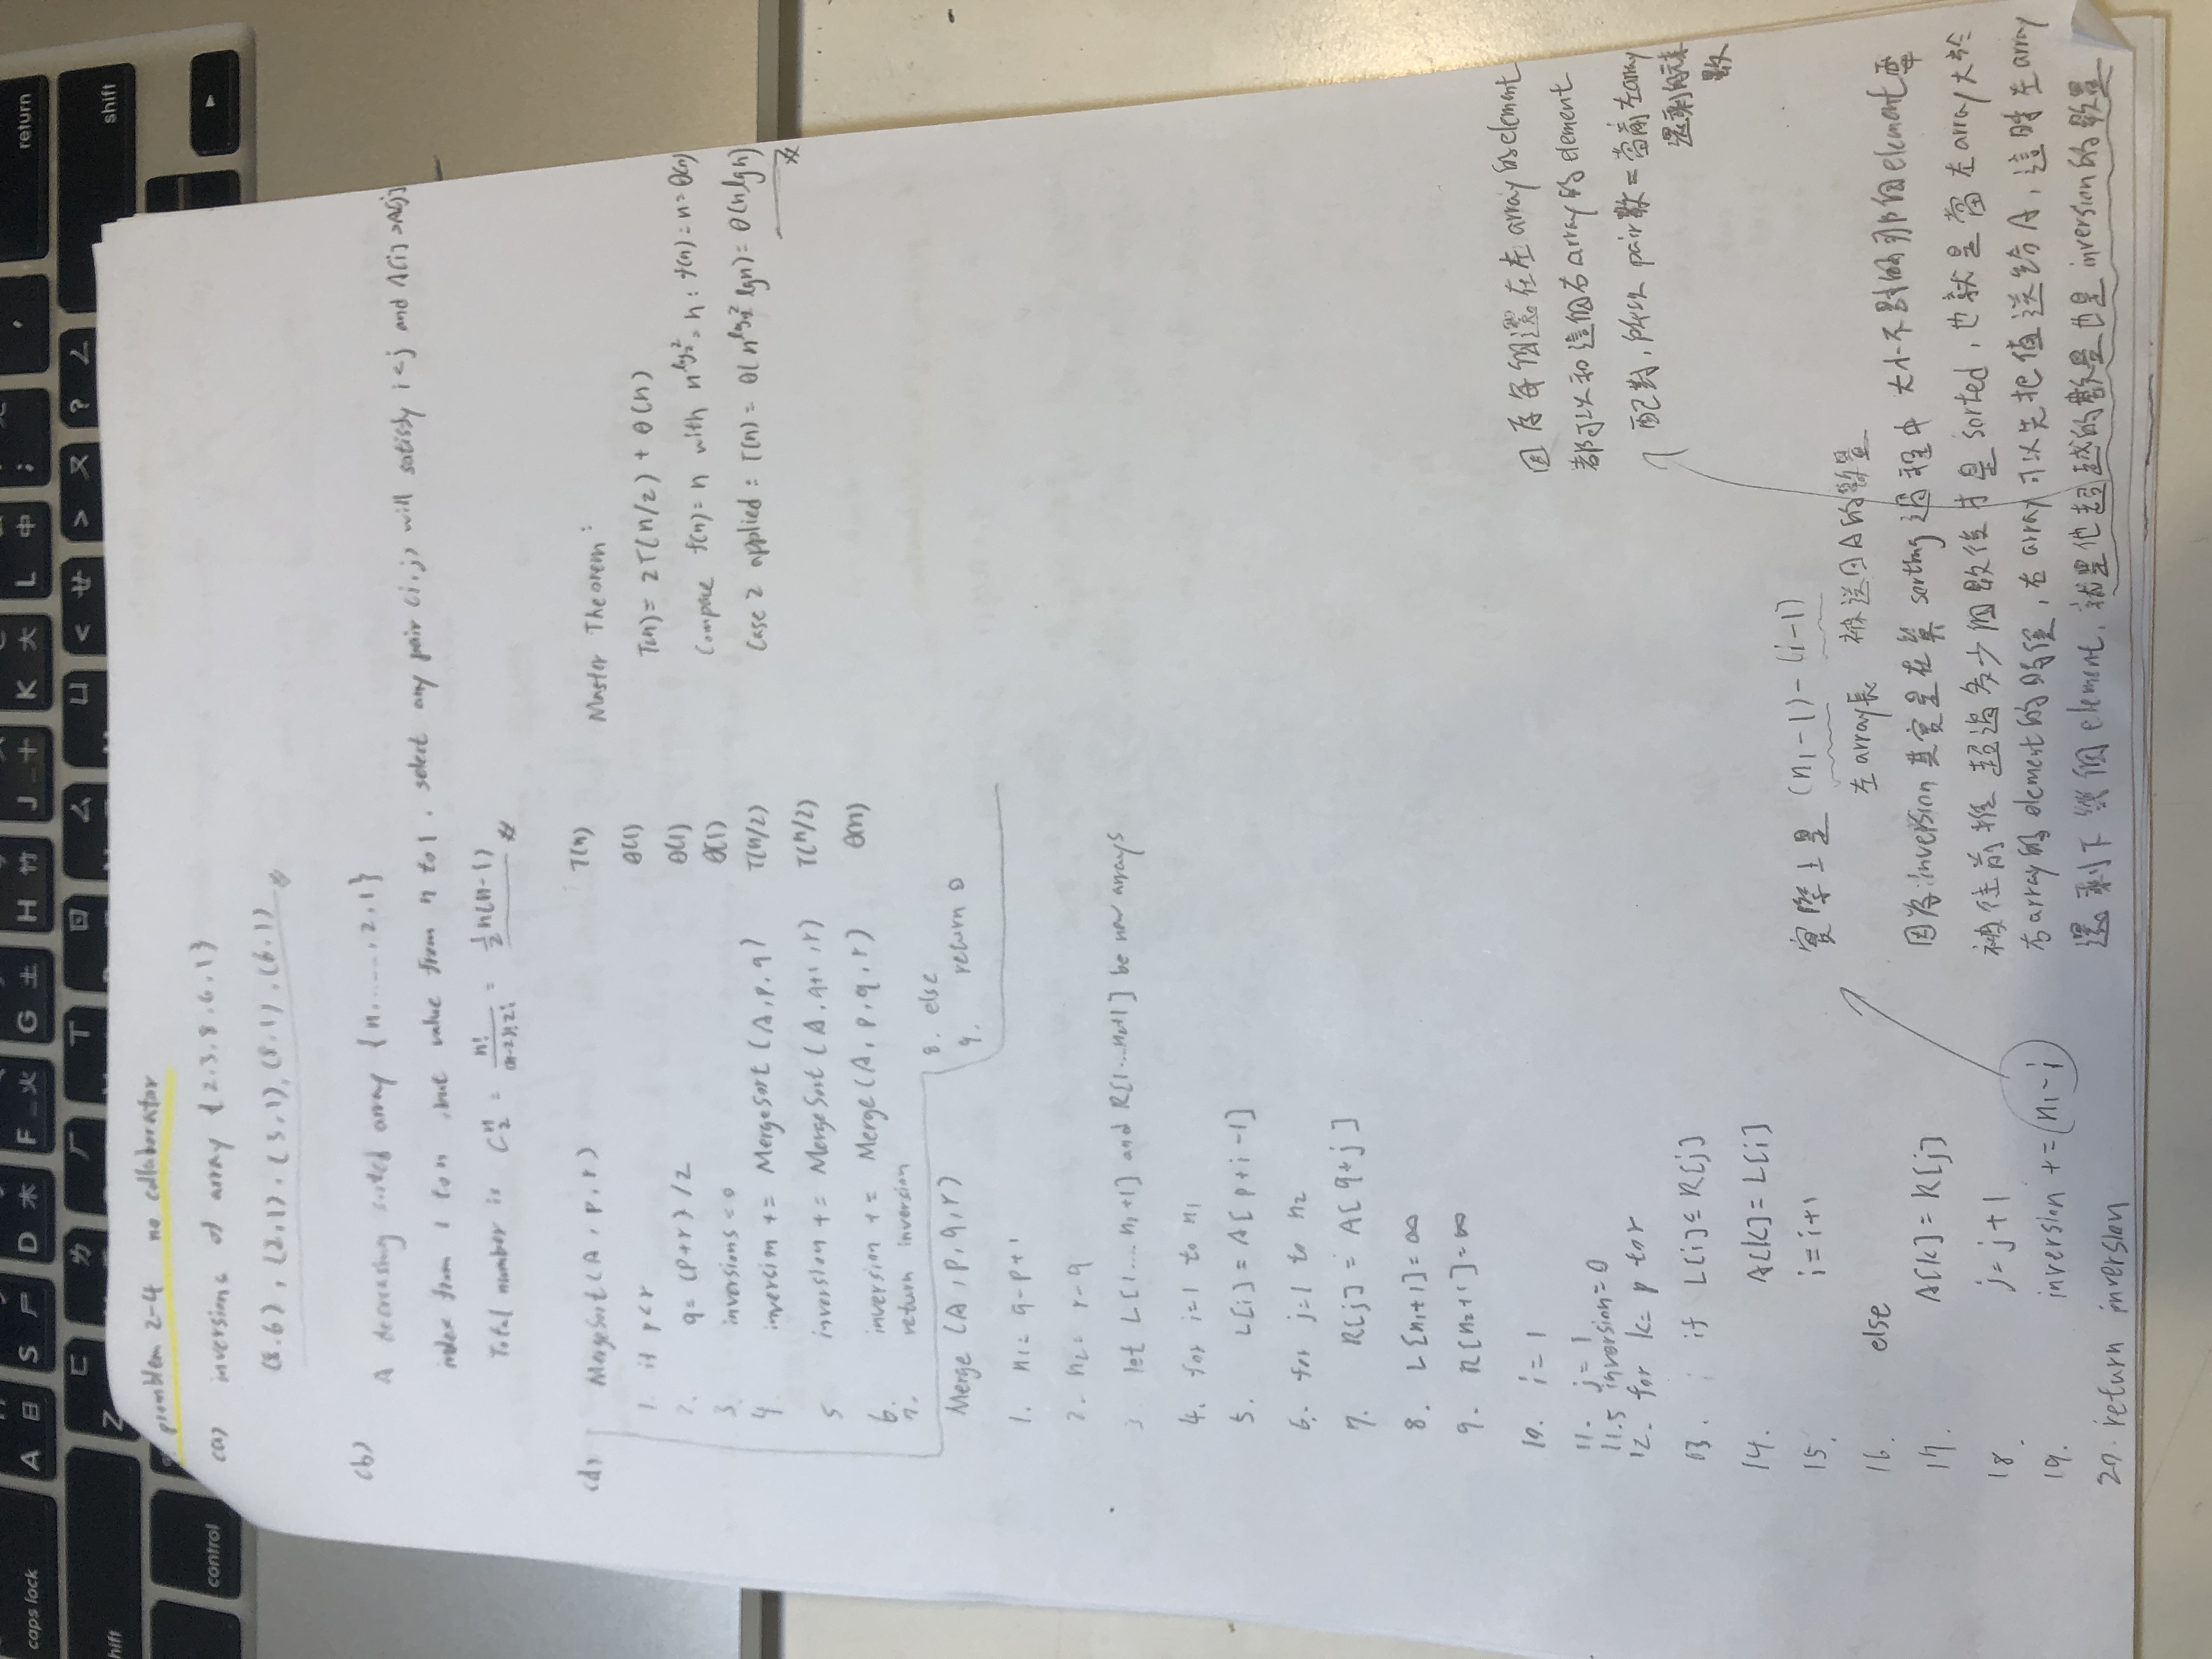 caps lock A 日 S 尸 D 木 F 火 G 土 H 竹 J 十 K 大 L 中 ; return
shift Z ㄈ ㄌ ㄏ ㄒ ㄖ ㄙ ㄩ < ㄝ > ㄡ ? ㄥ shift
control
promblem 2-4 no collaborator
(a) inversions of array {2,3,8,6,1}
(8,6), (2,1), (3,1), (8,1), (6,1)
(b)
A decreasing sorted array {n, ....., 2, 1}
index from 1 to n, but value from n to 1, select any pair (i, j) will satisfy i<j and A[i]>A[j]
Total number is C n 2 = n! / (n-2)!2! = 1/2 n(n-1)
(d) MergeSort(A, p, r) T(n)
1. if p<r θ(1)
2. q = (p+r)/2 θ(1)
3 inversions = 0 θ(1)
4 inversion += MergeSort(A, p, q) T(n/2)
5 inversion += MergeSort(A, q+1, r) T(n/2)
6. inversion += Merge(A, p, q, r) θ(n)
7. return inversion
8. else
9. return 0
Master Theorem:
T(n) = 2T(n/2) + θ(n)
Compare f(n)=n with n^log₂2 = n : f(n)=n=θ(n)
Case 2 applied : T(n) = θ(n^log₂2 lgn) = θ(nlgn)
Merge (A, p, q, r)
1. n₁ = q-p+1
2. n₂ = r-q
3 let L[1....n₁+1] and R[1...n₂+1] be new arrays
4. for i=1 to n₁
5. L[i] = A[p+i-1]
6. for j=1 to n₂
7. R[j] = A[q+j]
8. L[n₁+1]=∞
9. R[n₂+1]=∞
10. i = 1
11. j = 1
11.5 inversion=0
12. for k= p to r
13. if L[i]≤R[j]
14. A[k]=L[i]
15. i=i+1
16. else
17. A[k]=R[j]
18. j=j+1
19. inversion += n₁-i
20. return inversion
因為每個還在左array的element
都可以和這個右array的element
配對,所以 pair數=當前左array
還剩的元素
數
實際上是 (n₁-1)-(i-1)
左array長 被送回A的數量
因為inversion其實是在算 sorting過程中 大小不對的那個element要
被往前推 超過多少個數後才是 sorted, 也就是當左array大於
右array的element的時候,右array可以先把值送給A, 這時左array
還剩下幾個element, 就是他超越的數量也是inversion的數量